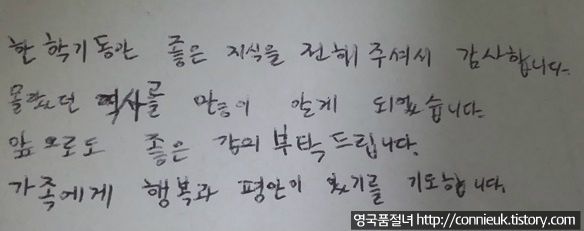 한 학기동안 좋은 지식을 전해 주셔서 감사합니다.
몰랐던 역사를 많이 알게 되었습니다.
앞으로도 좋은 강의 부탁드립니다.
가족에게 행복과 평안이 있기를 기도합니다.
영국품절녀 http://connieuk.tistory.com